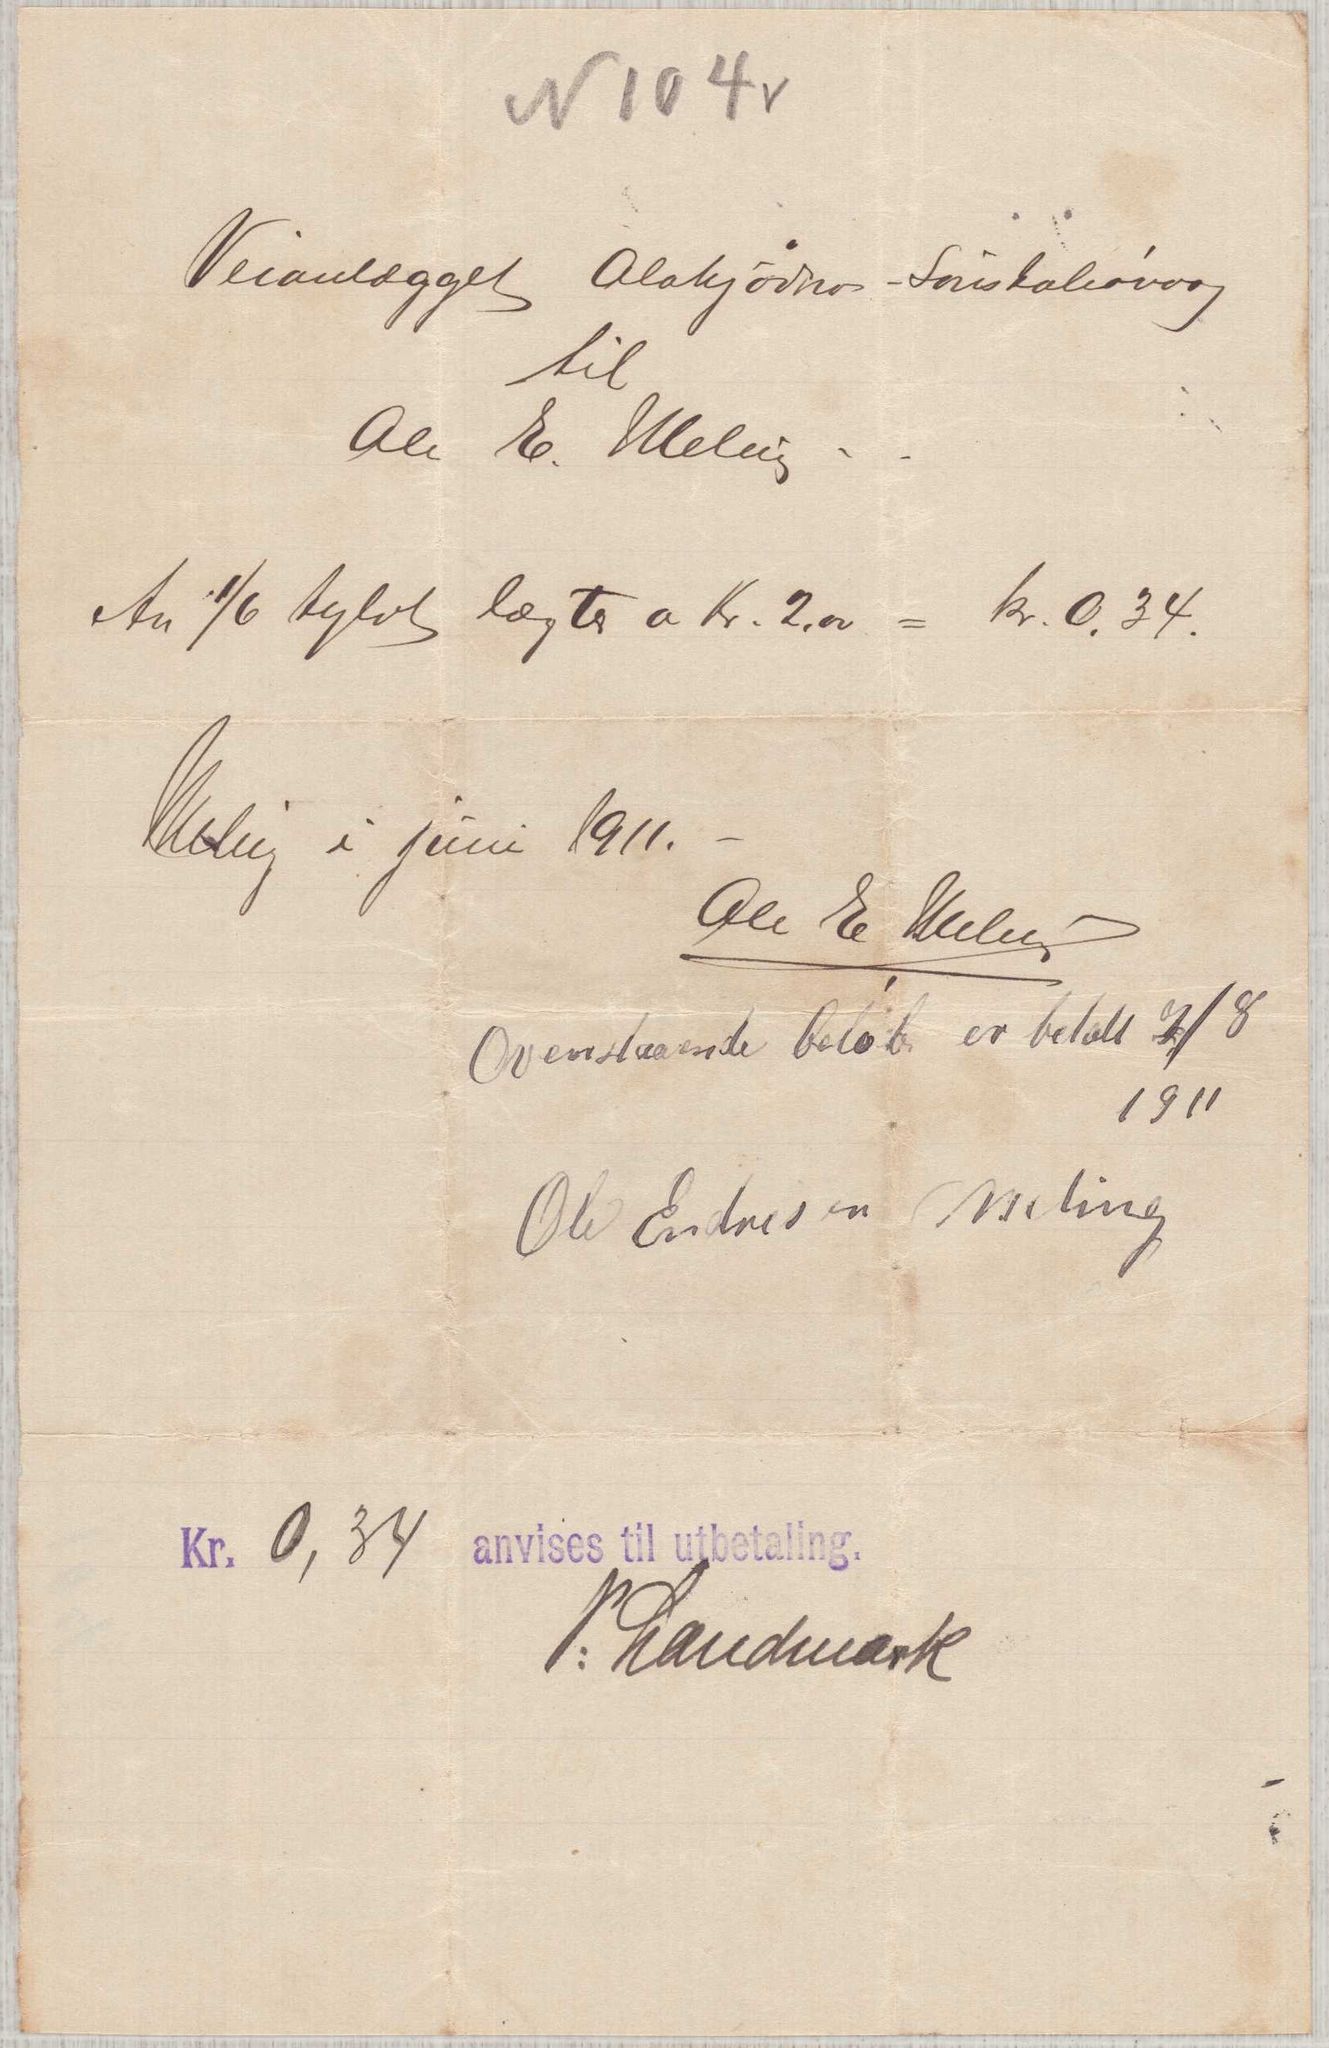 N 104 v
Veianlægget Alakjödnos - Söreskaleivaag
til
Ole E. Meling
An 1/6 tylvt lægter a Kr. 2.00 = kr. 0.34.
Meling i juni 1911. -
Ole E Meling
Ovenstaaende beløb er betalt 2/8
1911
Ole Endresen Meling
Kr. 0,34 anvises til utbetaling.
P. Landmark